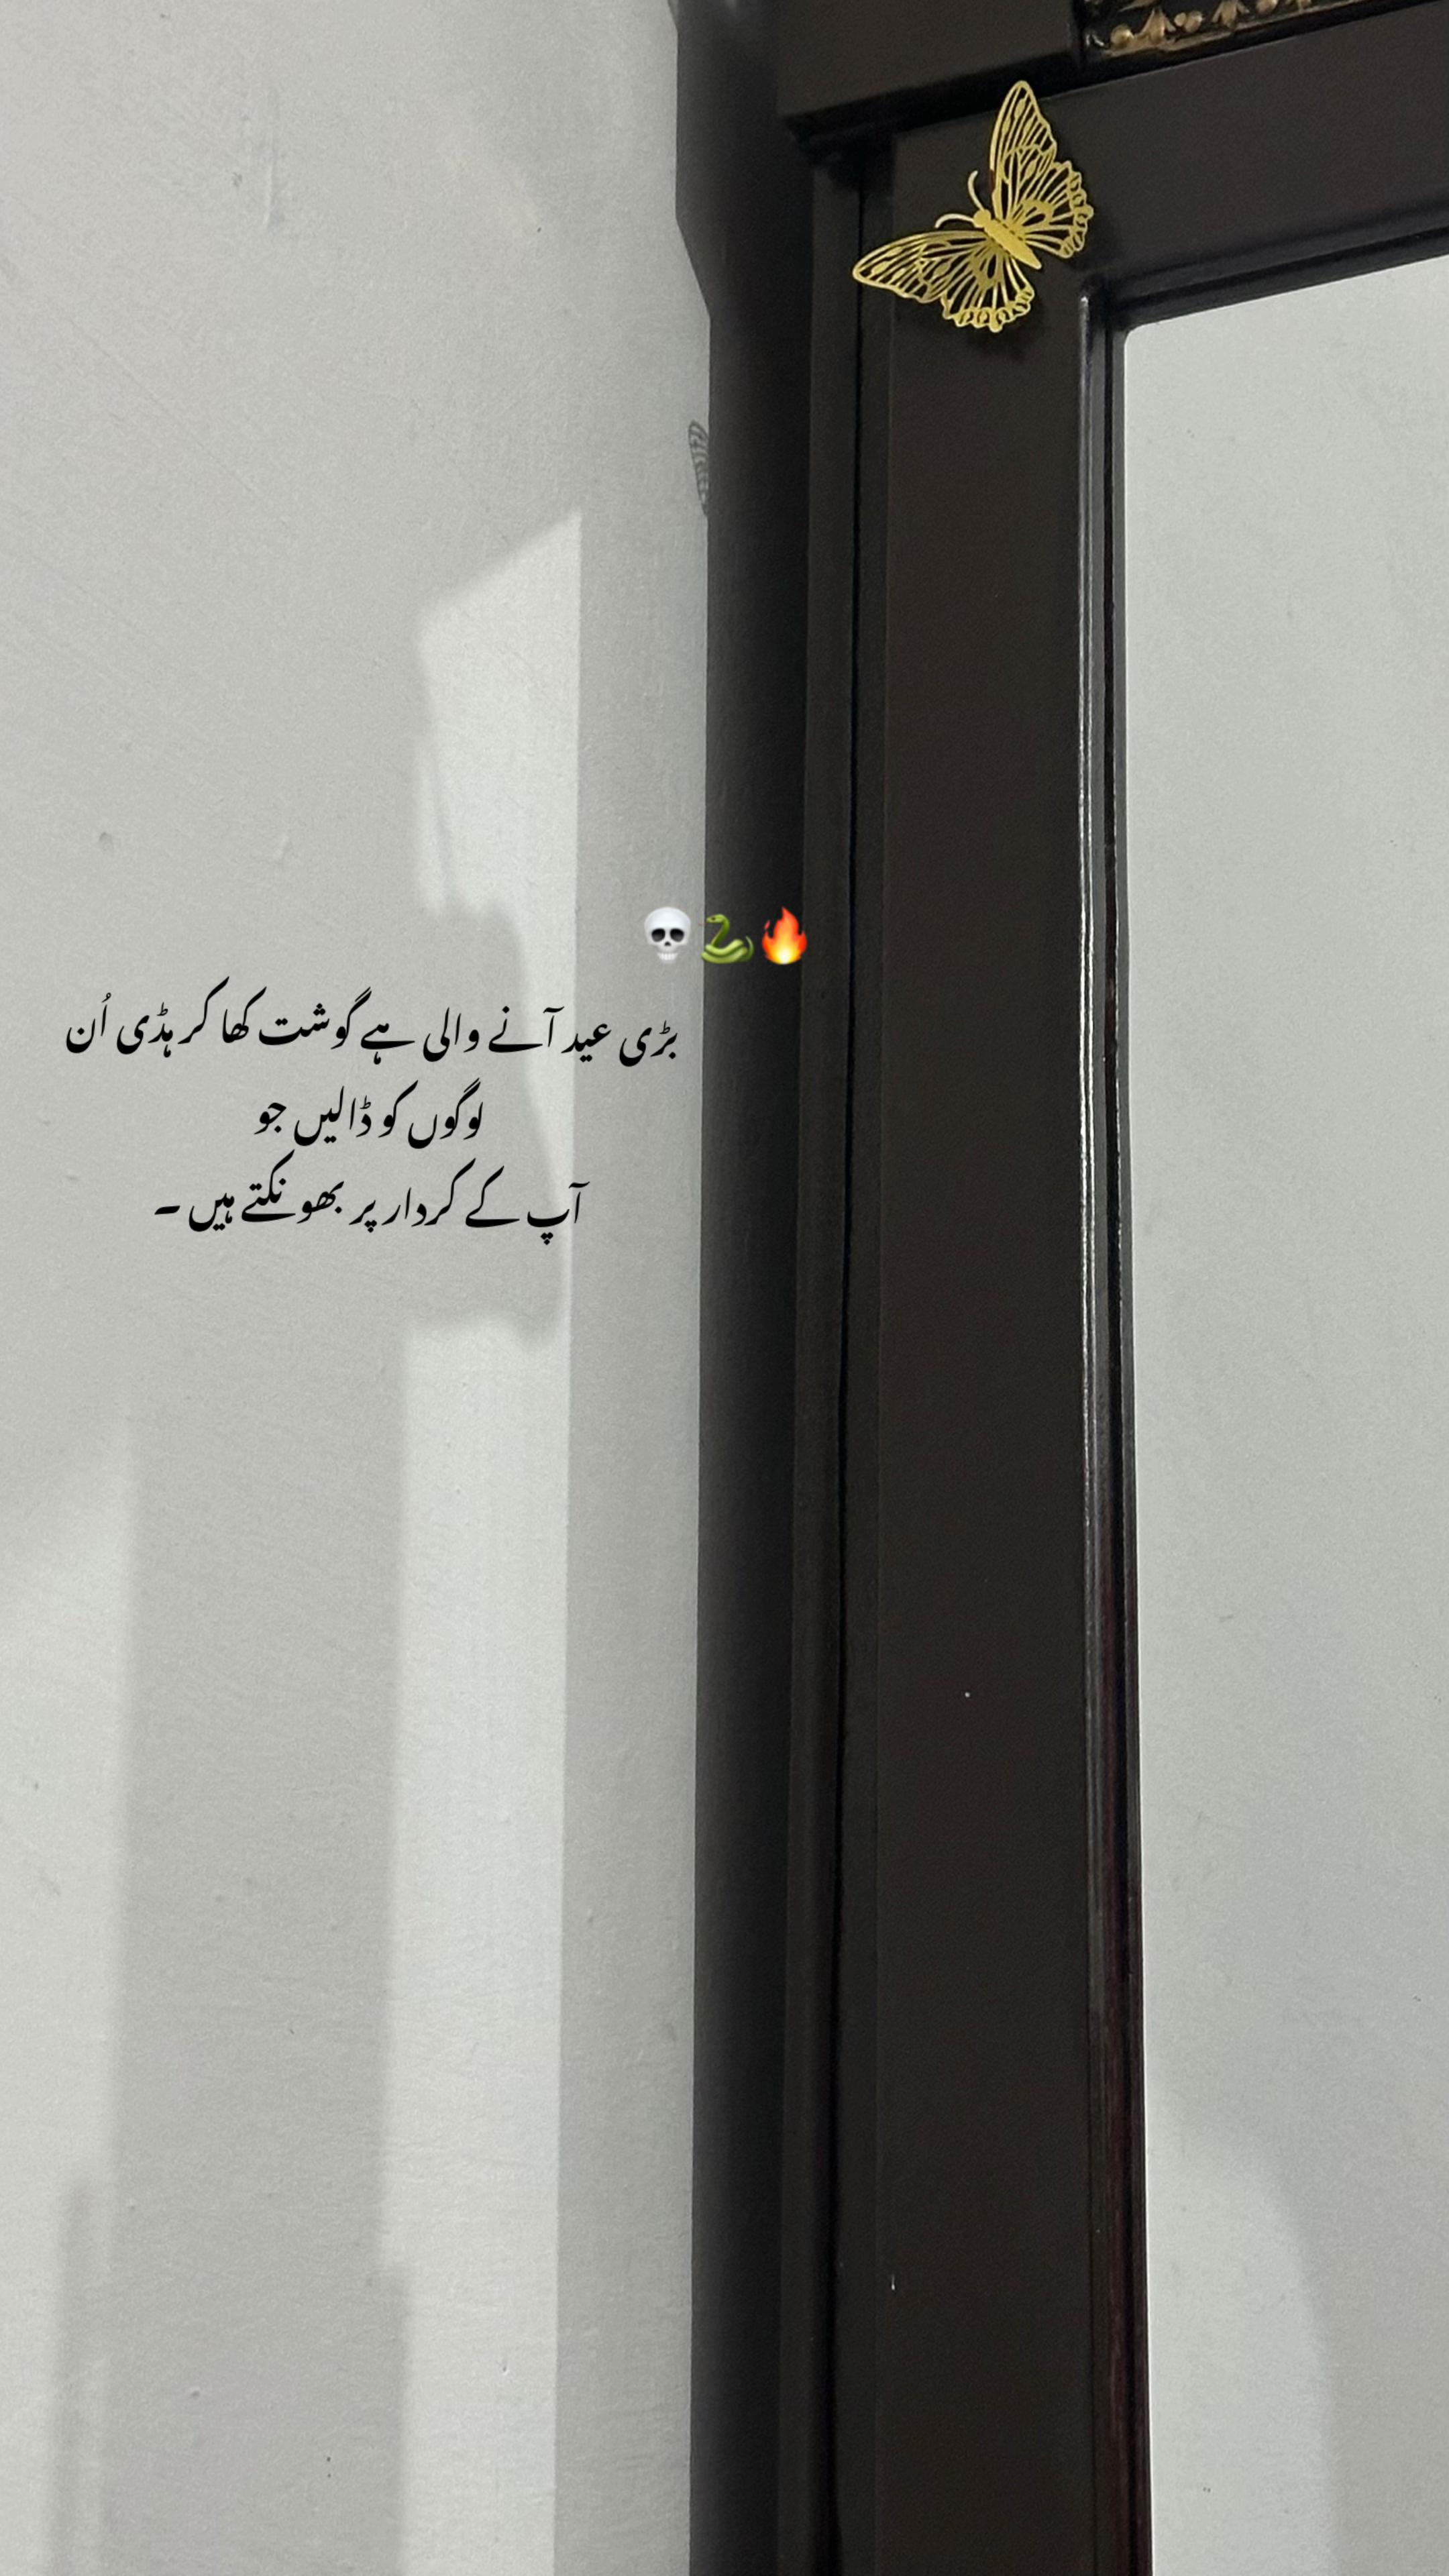 💀🐍🔥
بڑی عید آنے والی ہے گوشت کھا کر ہڈی اُن
لوگوں کو ڈالیں جو
آپ کے کردار پر بھونکتے ہیں ۔